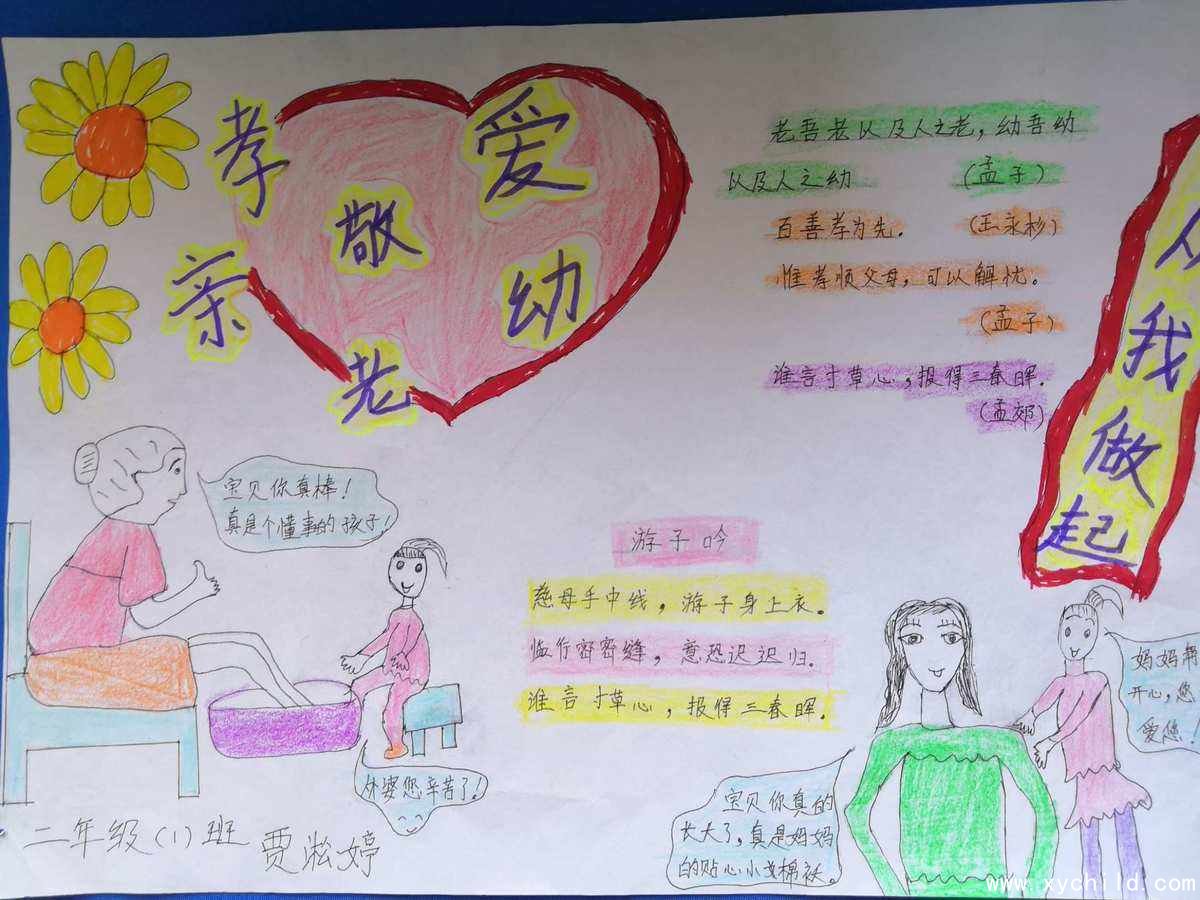 孝亲敬老爱幼
老吾老以及人之老，幼吾幼
以及人之幼 （孟子）
百善孝为先. （王永杉）
惟孝顺父母，可以解忧.
（孟子）
谁言寸草心，报得三春晖.
（孟郊）
从我做起
宝贝你真棒！
真是个懂事的孩子！
外婆您辛苦了！
游子吟
慈母手中线，游子身上衣.
临行密密缝，意恐迟迟归.
谁言寸草心，报得三春晖.
宝贝你真的
长大了，真是妈妈
的贴心小棉袄.
妈妈帮
开心，您
爱您！
二年级（1）班 贾淞婷
www.xychild.com